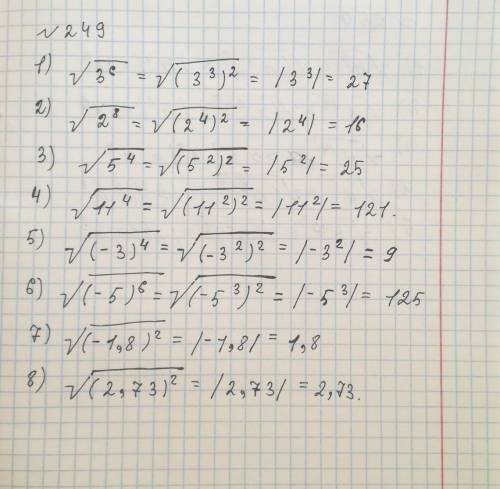 № 249
1) √3⁶ = √(3³)² = |3³| = 27
2) √2⁸ = √(2⁴)² = |2⁴| = 16
3) √5⁴ = √(5²)² = |5²| = 25
4) √11⁴ = √(11²)² = |11²| = 121.
5) √(-3)⁴ = √(-3²)² = |-3²| = 9
6) √(-5)⁶ = √(-5³)² = |-5³| = 125
7) √(-1,8)² = |-1,8| = 1,8
8) √(2,73)² = |2,73| = 2,73.